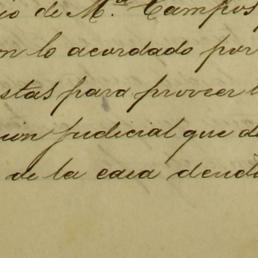 io de M.ª Campos
n lo acordado por
stas para proveer
ion judicial que d
de la casa deuda